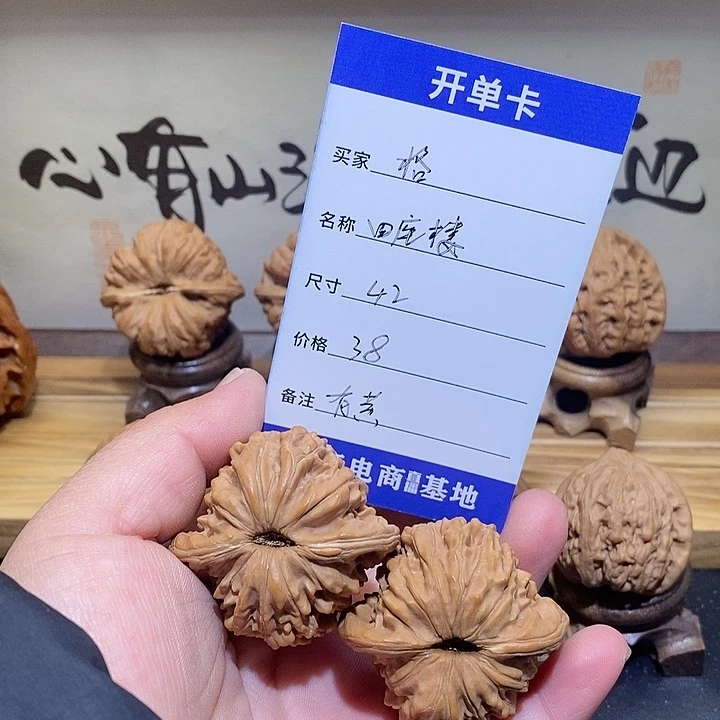 心有山
开单卡
买家 格
名称 四座楼
尺寸 42
价格 38
备注 有黄
电商直播基地